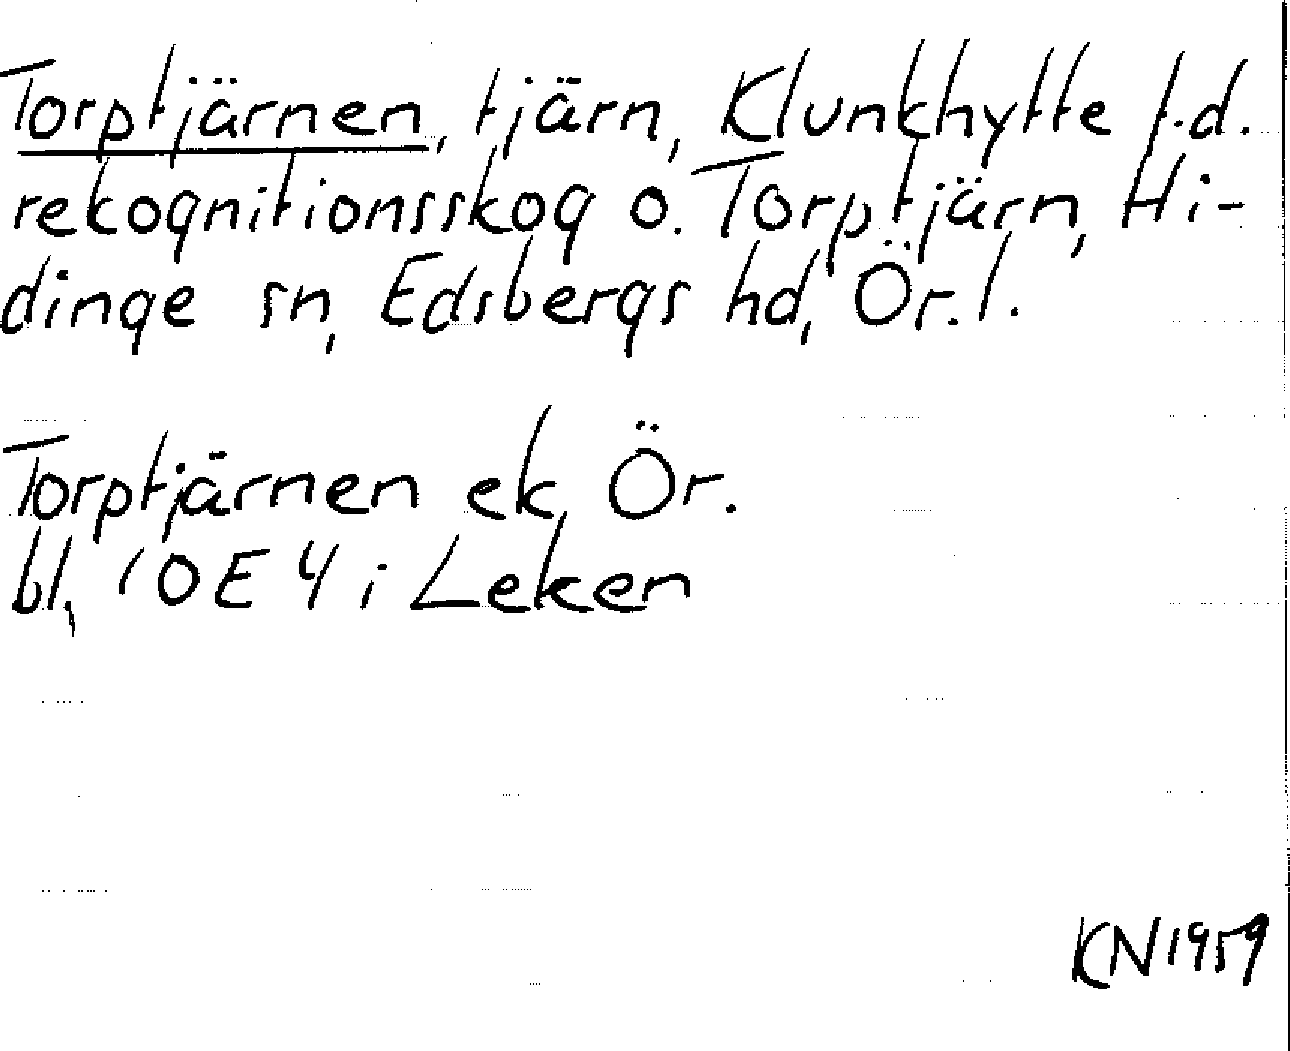 Torptjärnen, tjärn, Klunkhytte f.d.
rekognitionsskog o. Torptjärn, Hi-
dinge sn, Edsbergs hd, Ör. l.
Torptjärnen ek Ör.
bl, 10E4 i Leken
KN 1959